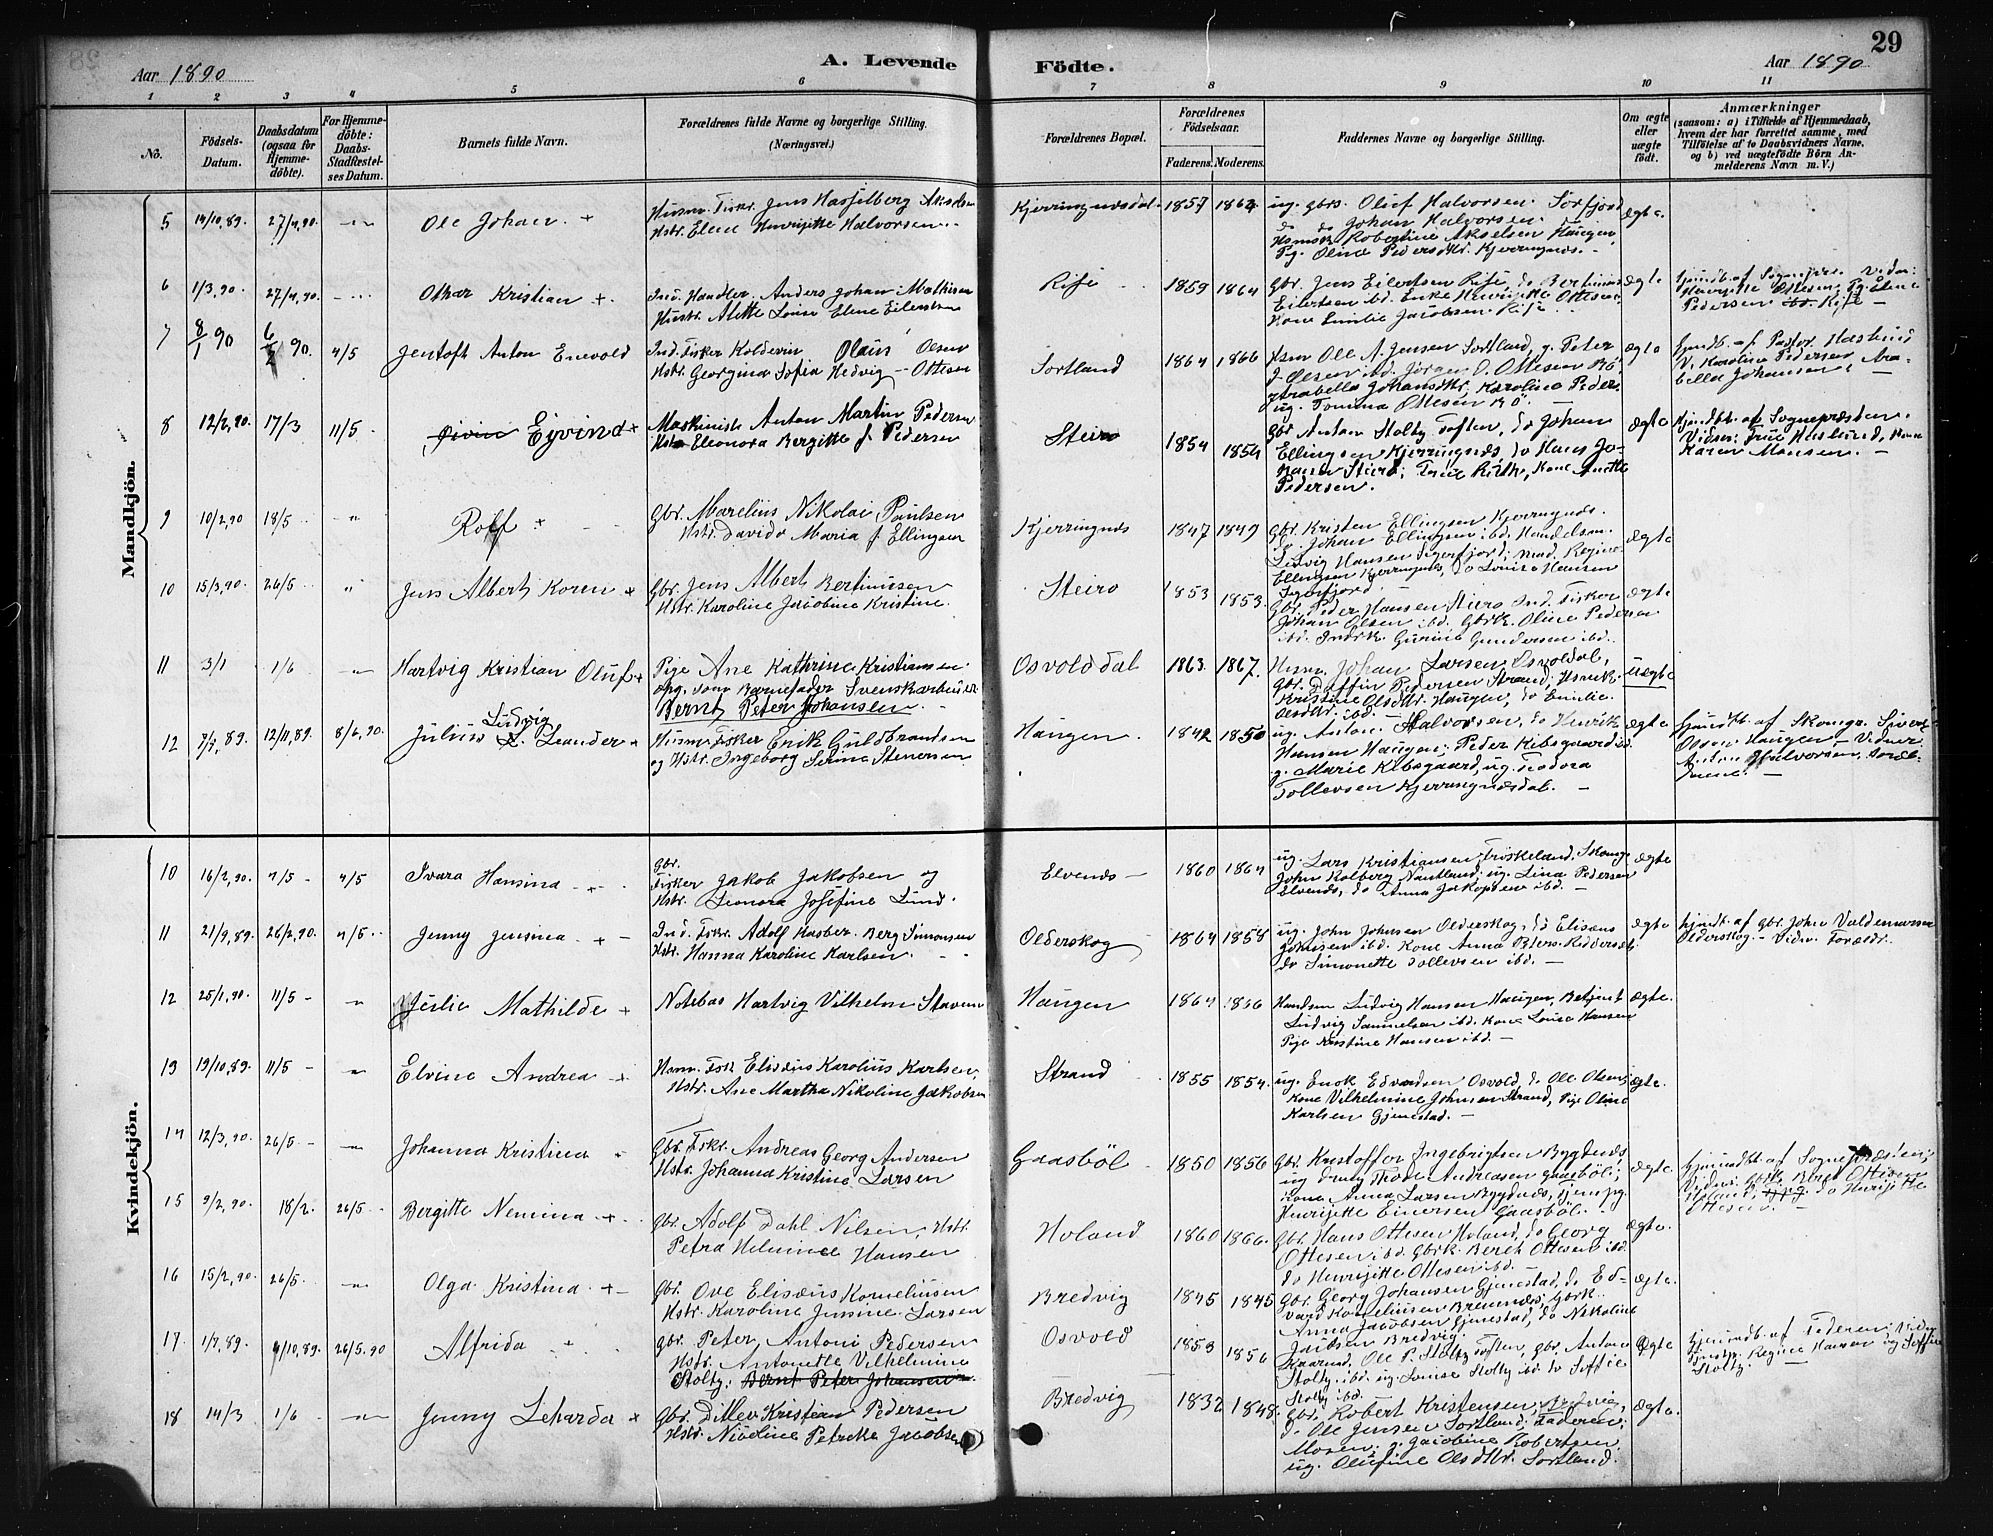 29
Aar 1890
A. Levende
Födte.
Aar 1890
1 2 3 4 5 6 7 8 9 10 11
No.
Födsels-
Datum.
Daabsdatum
(ogsaa for
Hjemme-
döbte).
For Hjemme-
döbte:
Daabs-
Stadfæstel-
ses Datum.
Barnets fulde Navn.
Forældrenes fulde Navne og borgerlige Stilling.
(Næringsvei.)
Forældrenes Bopæl.
Forældrenes
Födselsaar.
Faderens. Moderens.
Faddernes Navne og borgerlige Stilling.
Om ægte
eller
uægte
födt.
Anmærkninger
(saasom: a) i Tilfælde af Hjemmedaab,
hvem der har forrettet samme, med
Tilföielse af to Daabsvidners Navne,
og b) ved uægtefödte Börn An-
melderens Navn m. V.)
Mandkjön.
5 14/10,89. 27/4,90. Ole Johan + Kjerringnesdal 1857 1862 ægte.
Husm. Fiskr. Jens Hasselberg
Hstr. Elene Henrijette Halvorsen.
ug. gbrs. Oluf Halvorsen Sorfjord
Johan Halvorsen.
Robertine Akselsen Haugen,
Pg. Oline Pedersdtr. Kjerringnes.
6 1/3,90. 27/4,90. Othar Kristian + Rise 1859 1864 ægte
Ind. Handler. Anders Johan Mathisen
Hustr. Alette Lovise Elene Eilertsen
Gbr. Jens Eilertsen Rise, do Bertinus
Eilertsen ibd. Enke Henrijette Ottesen
Kone Emilie Jacobsen Rise
Pedersen ibd. Rise
7 8/1 90 6/2 90. 4/5 Jentoft Anton Enevold Sortland 1864 1866 ægte
Ind. Fisker Koldevin Olaus Olsen
Hstr. Georgina Sofia Hedvig Ottesen
Hsm Ole A. Jensen Sortland, g. Peter
Olsen ibd. Jörgen O. Ottesen Bö,
Arabella Johansdtr. Karoline Peder.
ug. Tomina Ottesen Bö.
hjmdb. af Pastor Haslund
V. Karoline Pedersen Ara-
bella Johansen.
8 12/2,90. 17/3 11/5 Eyvind + Steiro 1854 1854 ægte
Maskinist Anton Martin Pedersen
Hstr Eleonora Bergitte f. Pedersen
Gbr Anton Stoltz Toften, do Johan
Ellingsen Kjerringnes, do Hans Jo-
hansen Steiro, Kone Anette
Pedersen.
Hjemdbt. af Sognepræsten.
Vidner: Frue Haslund, Kone
Karen Monsen.
9 10/2,90 18/5 Rolf + Kjerringnes 1847 1849 ægte
Gbr. Marelius Nikolai Paulsen
Hstr. Davida Maria f. Ellingsen
Gbr. Kristen Ellingsen Kjerringnes.
do Johan Ellingsen ibd. Handelsm.
Ludvig Hansen Sigerfjord, mad. Regine
Ellingsen Kjerringnes, do Lovise Hansen
Sigerfjord.
10 15/3,90. 26/5 Jens Albert Koren + Steiro 1853 1853. ægte
Gbr. Jens Albert Bertinusen
Hstr. Karoline Jacobine Kristine.
Gbr. Peder Hansen Steiro Ind. Fisker
Johan Olsen ibd. Gbrk. Oline Pedersen
ibd. Indrk Gurine Gundersen ibd.
11 3/1 1/6 Hartvig Kristian Oluf + Osvolddal 1863. 1867. uægte
Pige Ane Kathrine Kristiansen.
opg. som Barnefader Svenskarbeider
Bernt Peter Johansen.
Husm. Johan Larsen Osvoldal,
Gbr. Daffin Pedersen Strand, Hsmk.
Kristine Olsdtr. Haugen, do Emilie
Olsdtr. ibd.
12 7/7,89. 12/11,89. 8/6,90. Julius Ludvig Leander + Haugen. 1842 1850 ægte
Husm Fisker Erik Guldbrandsen
og Hstr. Ingeborg Serine Stenersen
ug. Anton Halvorsen, do Henrik
Hansen Haugen. Peder Kibsgaard ibd.
g. Marie Kibsgaard, ug. Teodora
Tollevsen Kjerringnesdal.
hjmdbt. af Skomgr. Sivert
Olsen Haugen Vidner
Anton Halvorsen,
Kvindekjön.
10 16/2,90. 4/5 4/5 Ivara Hansina Elvenes 1860 1864 ægte
Gbr.
Fisker Jakob Jakobsen og
Hstr. Leonora Josefine Lund.
ug. Lars Kristiansen Friskeland, Skomgr
John Kolberg ug. Lina Pedersen
Elvenes, do Anna Jakobsen ibd.
11 21/9,89. 26/2,90. 4/5 Jenny Jensina + Olderskog 1864 1858 ægte
Ind. Fskr. Adolf Kasber. Berg Simonsen
Hstr. Hanna Karoline Karlsen.
ug. John Johnsen Olderskog, do Elisæus
Johnsen ibd. Kone Anna
do Simonette Tollevsen ibd.
hjmdt. af Gbr. John Valdemarsen
Olderskog. Vidn. Foræld.
12 25/1,90. 11/5 Julie Mathilde + Haugen 1864 1866 ægte.
Notebas Hartvig Vilhelm Stavem
Handsm. Ludvig Hansen Haugen, Betjent
Ludvig Samuelsen ibd. Kone Lovise Hansen
Pige Kristine Hansen ibd.
13 19/10,89. 11/5 Elvine Andrea + Strand 1855 1854. ægte.
Husm. Fisk Elisæus Karolius Karlsen
Hstr. Ane Martha Nikoline Jakobsen
ug. Enok Edvardsen Osvold, do Ole Olsen,
Kone Vilhelmine Johnsen Strand, Pige Oline
Karlsen Gjenestad.
14 12/3,90. 26/5 Johanna Kristina Gaasböl 1850 1856 ægte
Gbr. Fskr. Andreas Georg Andersen
Hstr. Johanna Kristine Larsen
Gbr. Kristoffer Ingebrigtsen Bygdnes
ug dreng Thode Andreasen Gaasböl;
Kone Anna Larsen Bygdnes,
Henrijette Einersen Gaasböl.
15 9/2,90. 18/2. 26/5 Bergitte Nemina + Holand 1860 1866. ægte.
Gbr. Adolf Dahl Nilsen, Hstr.
Petra Helmine Hansen
Gbr. Hans Ottesen Holand, do Georg
Ottesen ibd. Gbrk. Beret Ottesen ibd.
do Henrijette Ottesen ibd.
Hjemmdbt. af Sognepræsten;
Vidner: Gbrk. Beret Ottesen
Holand, do Henrijette
Ottesen.
16 15/2,90. 26/5 Olga Kristina + Bredvig 1845 1845 ægte.
Gbr. Ove Elisæus Korneliussen
Hstr. Karoline Jensine Larsen
Gbr. Georg Johansen Gjenestad, do Ed-
vard Korneliussen Bremnes, Gbrk.
Anna Jacobsen Gjenestad, do Nikoline
Jacobsen Bredvig.
17 1/7,89. 9/10,89. 26/5.90 Alfrida Osvold 1853 1856 ægte
Gbr. Peter Antoni Pedersen
Hstr. Antonette Vilhelmine
Stoltz. Bernt Peter Johansen
Ole P. Stoltz Toften, Gbr. Anton
Stoltz ibd. ug. Lovise Stoltz ibd. do Soffie
Stoltz ibd.
Hjemmdbt. af Faderen; Vidn
Regine Hansen og Soffie
Stoltz.
18 14/3 1/6 Jenny Leharda + Bredvig 1832 1848. ægte.
Gbr. Ditlev Kristian Pedersen
Hstr. Nicoline Petrikke Jacobsen
Gbr. Robert Kristensen Bredvig,
do Ole Jensen Sortland, Faderen,
g. Jacobine Robertsen
ug. Olufine Olsdtr. Sortland.